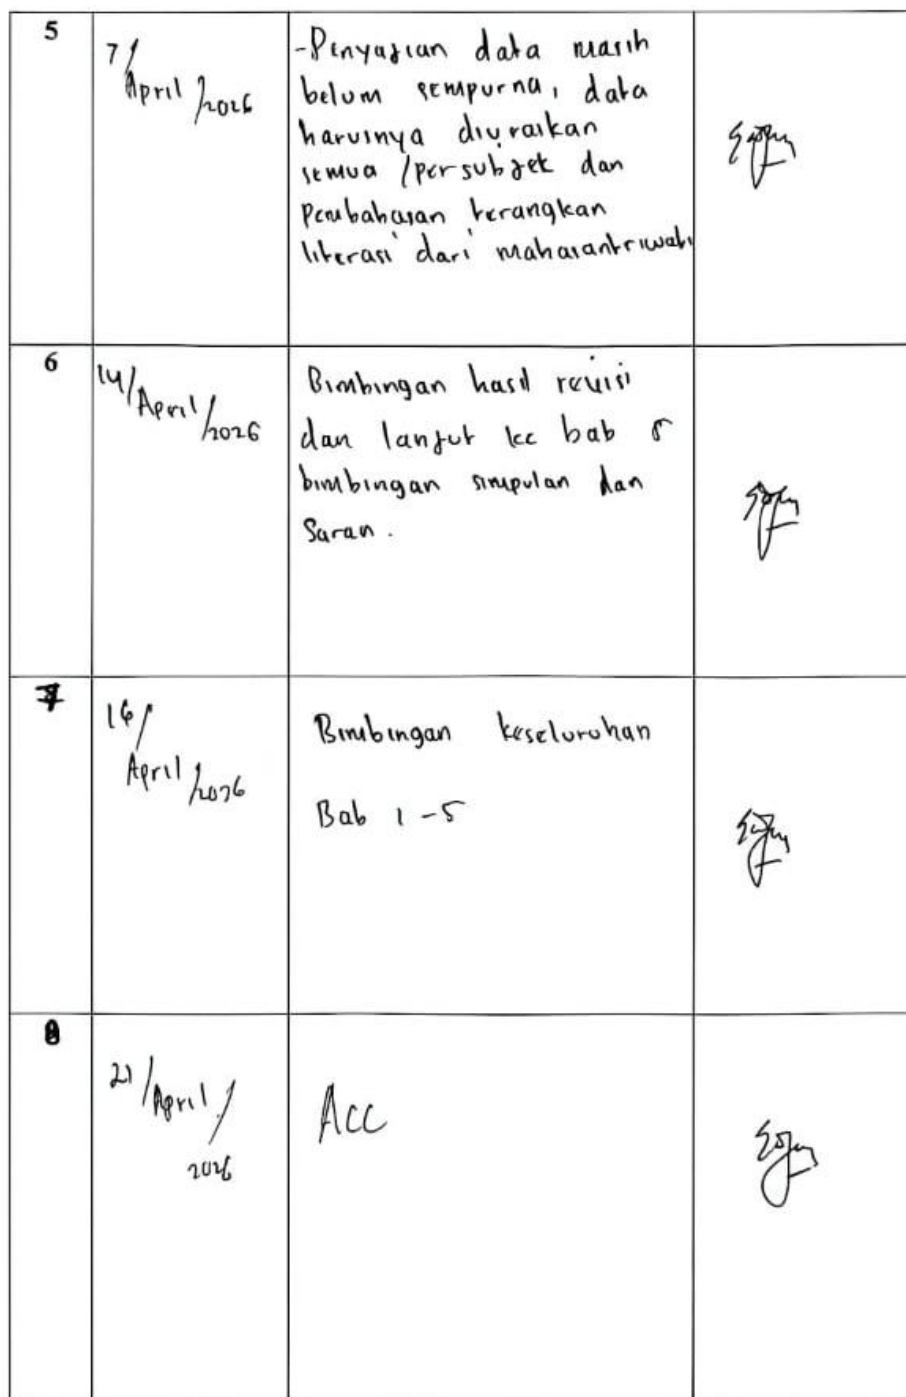 5
7/April/2026
-Penyajian data masih
belum sempurna, data
harusnya diuraikan
semua /persubjek dan
pembahasan terangkan
literasi dari mahasantriwati
6
14/April/2026
Bimbingan hasil revisi
dan lanjut ke bab 5
bimbingan simpulan dan
Saran.
7
16/April/2026
Bimbingan keseluruhan
Bab 1-5
8
21/April/2026
Acc